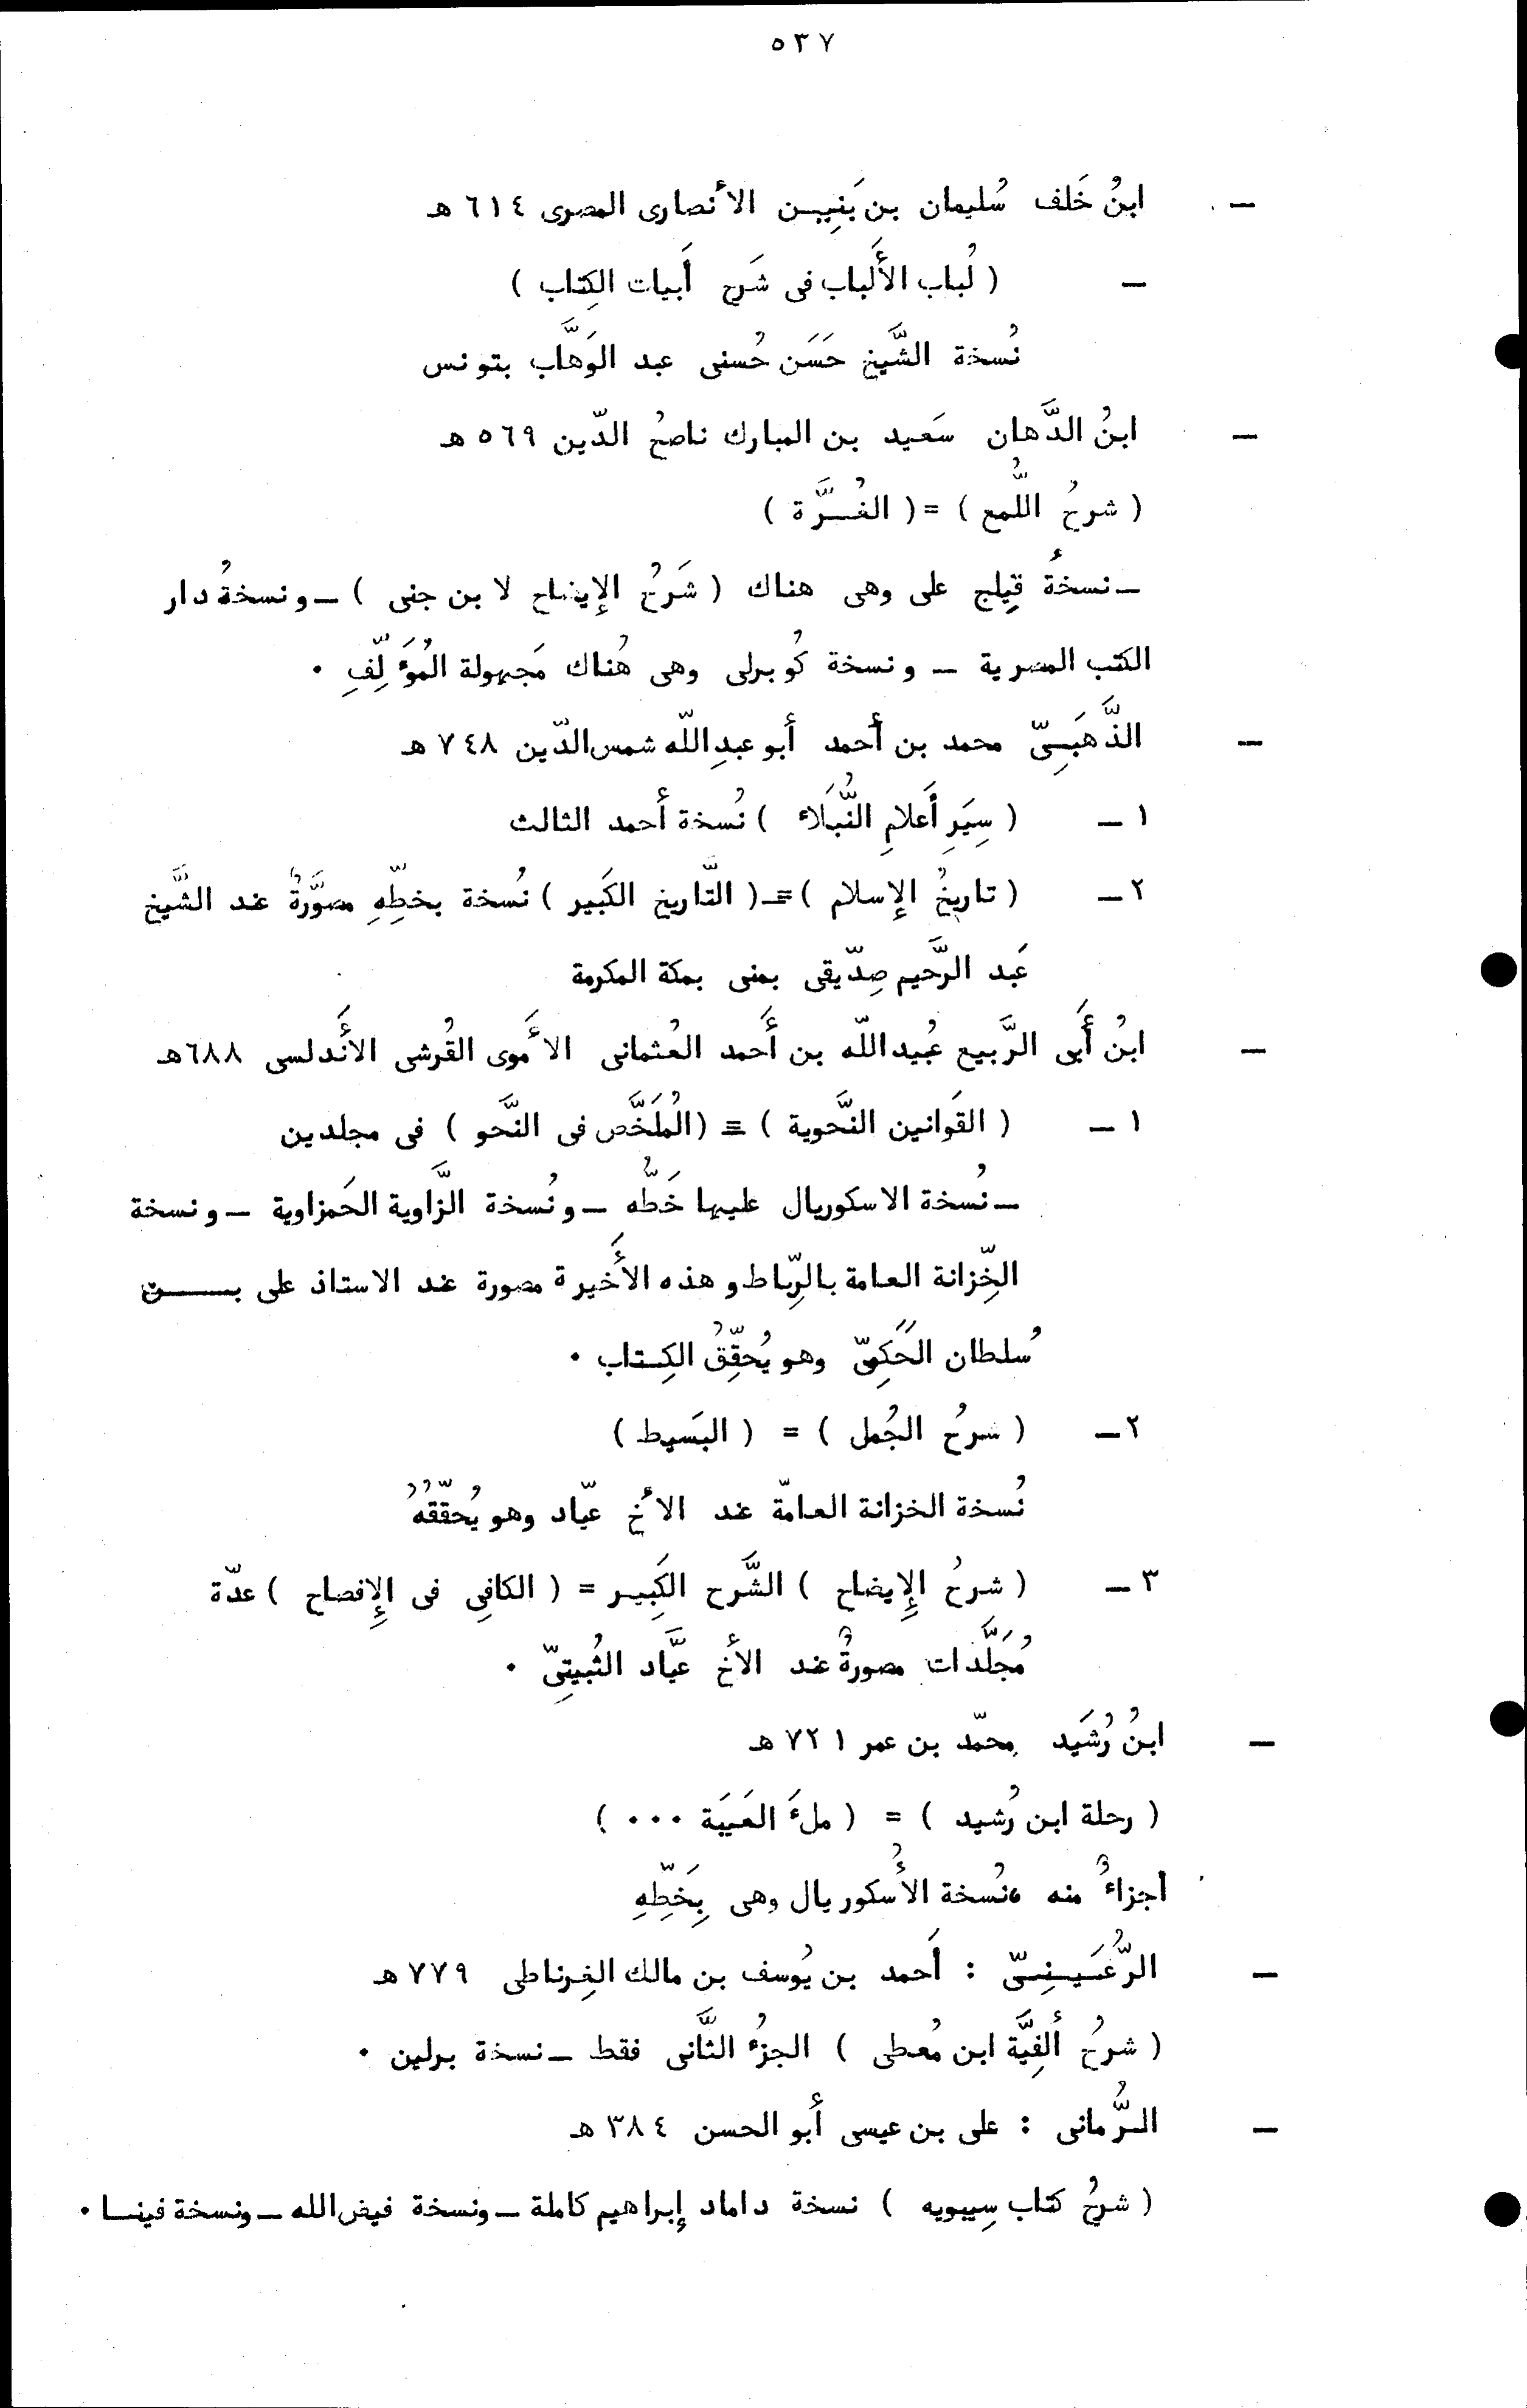 ٥٣٧
— ابنُ خَلف سُليمان بن بَنِيـن الأنصارى المصرى ٦١٤ هـ
— ( لُباب الأَلباب فى شَرح أَبيات الكِتاب )
نُسخة الشَّيخ حَسَن حُسنى عبد الوَهَّاب بتونس
— ابنُ الدَّهان سَعيد بن المبارك ناصحُ الدّين ٥٦٩ هـ
( شرحُ اللُّمع ) = ( الغُـرَّة )
— نسخةُ قِيلج على وهى هناك ( شَرحُ الإيضاح لابن جنى ) — ونسخةُ دار
الكتب المصرية — ونسخة كُوبرلى وهى هُناك مَجهولة المُؤَلِّفِ .
— الذَّهَبِـىّ محمد بن أحمد أبو عبدِ اللّه شمس الدّين ٧٤٨ هـ
١ — ( سِيَرِ أَعلامِ النُّبَلَاء ) نُسخة أحمد الثالث
٢ — ( تاريخُ الإسلام ) = ( التّاريخ الكَبير ) نُسخة بخطِّهِ مصوَّرةٌ عند الشَّيخ
عَبد الرَّحيم صِدّيقى بمنى بمكة المكرمة
— ابنُ أَبى الرَّبيع عُبيد اللّه بن أَحمد العُثمانى الأَموى القُرشى الأَندلسى ٦٨٨ هـ
١ — ( القَوانين النَّحوية ) = ( المُلَخَّص فى النَّحو ) فى مجلدين
— نُسخة الاسكوريال عليها خَطُّه — ونُسخة الزَّاوية الحَمزاوية — ونسخة
الخِّزانة العامة بالرِّباط وهذه الأَخيرة مصورة عند الاستاذ على بـــن
سُلطان الحَكَمِىّ وهو يُحقِّقُ الكِتاب .
٢ — ( شرحُ الجُمل ) = ( البَسيط )
نُسخة الخزانة العامّة عند الأخ عيّاد وهو يُحقّقُهُ
٣ — ( شرحُ الإيضاح ) الشَّرح الكَبِيـر = ( الكافِى فى الإفصاح ) عدّة
مُجَلَّدات مصورةٌ عند الأخ عيَّاد الثُبيتِىّ .
— ابنُ رُشَيد محمّد بن عمر ٧٢١ هـ
( رحلة ابن رُشيد ) = ( ملءَ العَيبَة ٠٠٠ )
أجزاءٌ منه ، نُسخة الأُسكوريال وهى بِخَطِّهِ
— الرُّعَيـنِـىّ : أَحمد بن يُوسف بن مالك الغِرناطى ٧٧٩ هـ
( شرحُ ألفِيَّة ابن مُعطى ) الجزءُ الثَّانى فقط — نسخة برلين .
— الـرُّمانى : على بن عيسى أَبو الحسن ٣٨٤ هـ
( شرحُ كتاب سِيبويه ) نسخة داماد إبراهيم كاملة — ونسخة فيض الله — ونسخة فينـا .